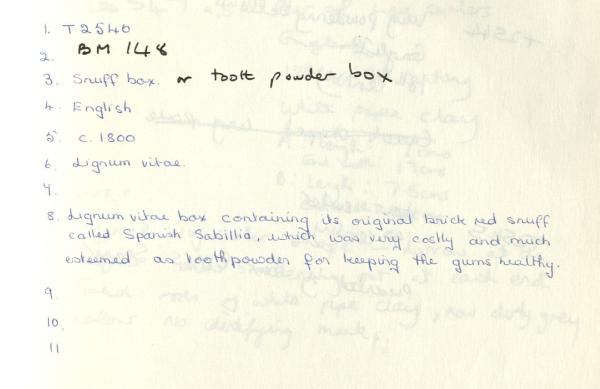 1. T2540
2. BM 148
3. Snuff box. or tooth powder box
4. English
5. c. 1800
6. Lignum vitae.
7.
8. Lignum vitae box containing its original brick red snuff
called Spanish Sabillia, which was very costly and much
esteemed as toothpowder for keeping the gums healthy.
9.
10.
11